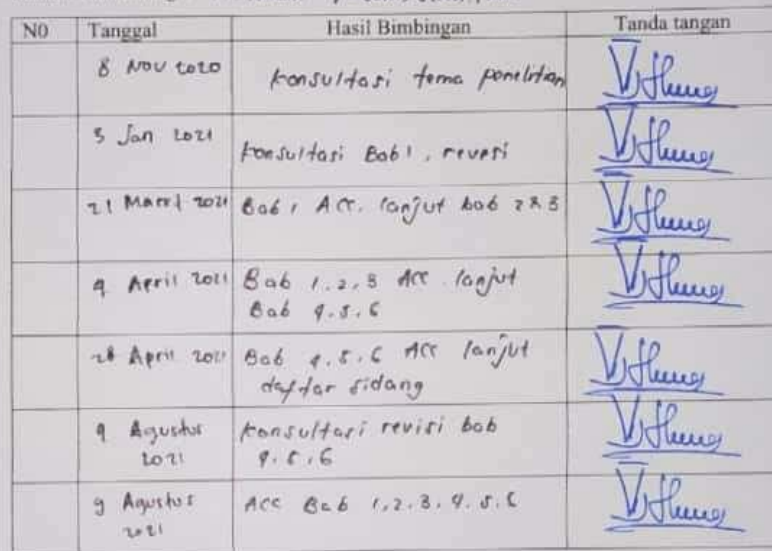 N0 Tanggal Hasil Bimbingan Tanda tangan
8 Nov 2020 konsultasi tema penelitian
5 Jan 2021 konsultasi Bab 1, revisi
21 Maret 2021 Bab 1 Acc. lanjut bab 2 & 3
4 April 2021 Bab 1.2,3 Acc lanjut
Bab 4.5.6
28 April 2021 Bab 4.5.6 Acc lanjut
daftar sidang
9 Agustus konsultasi revisi bab
2021 4.5.6
9 Agustus Acc Bab 1,2.3.4.5.6
2021